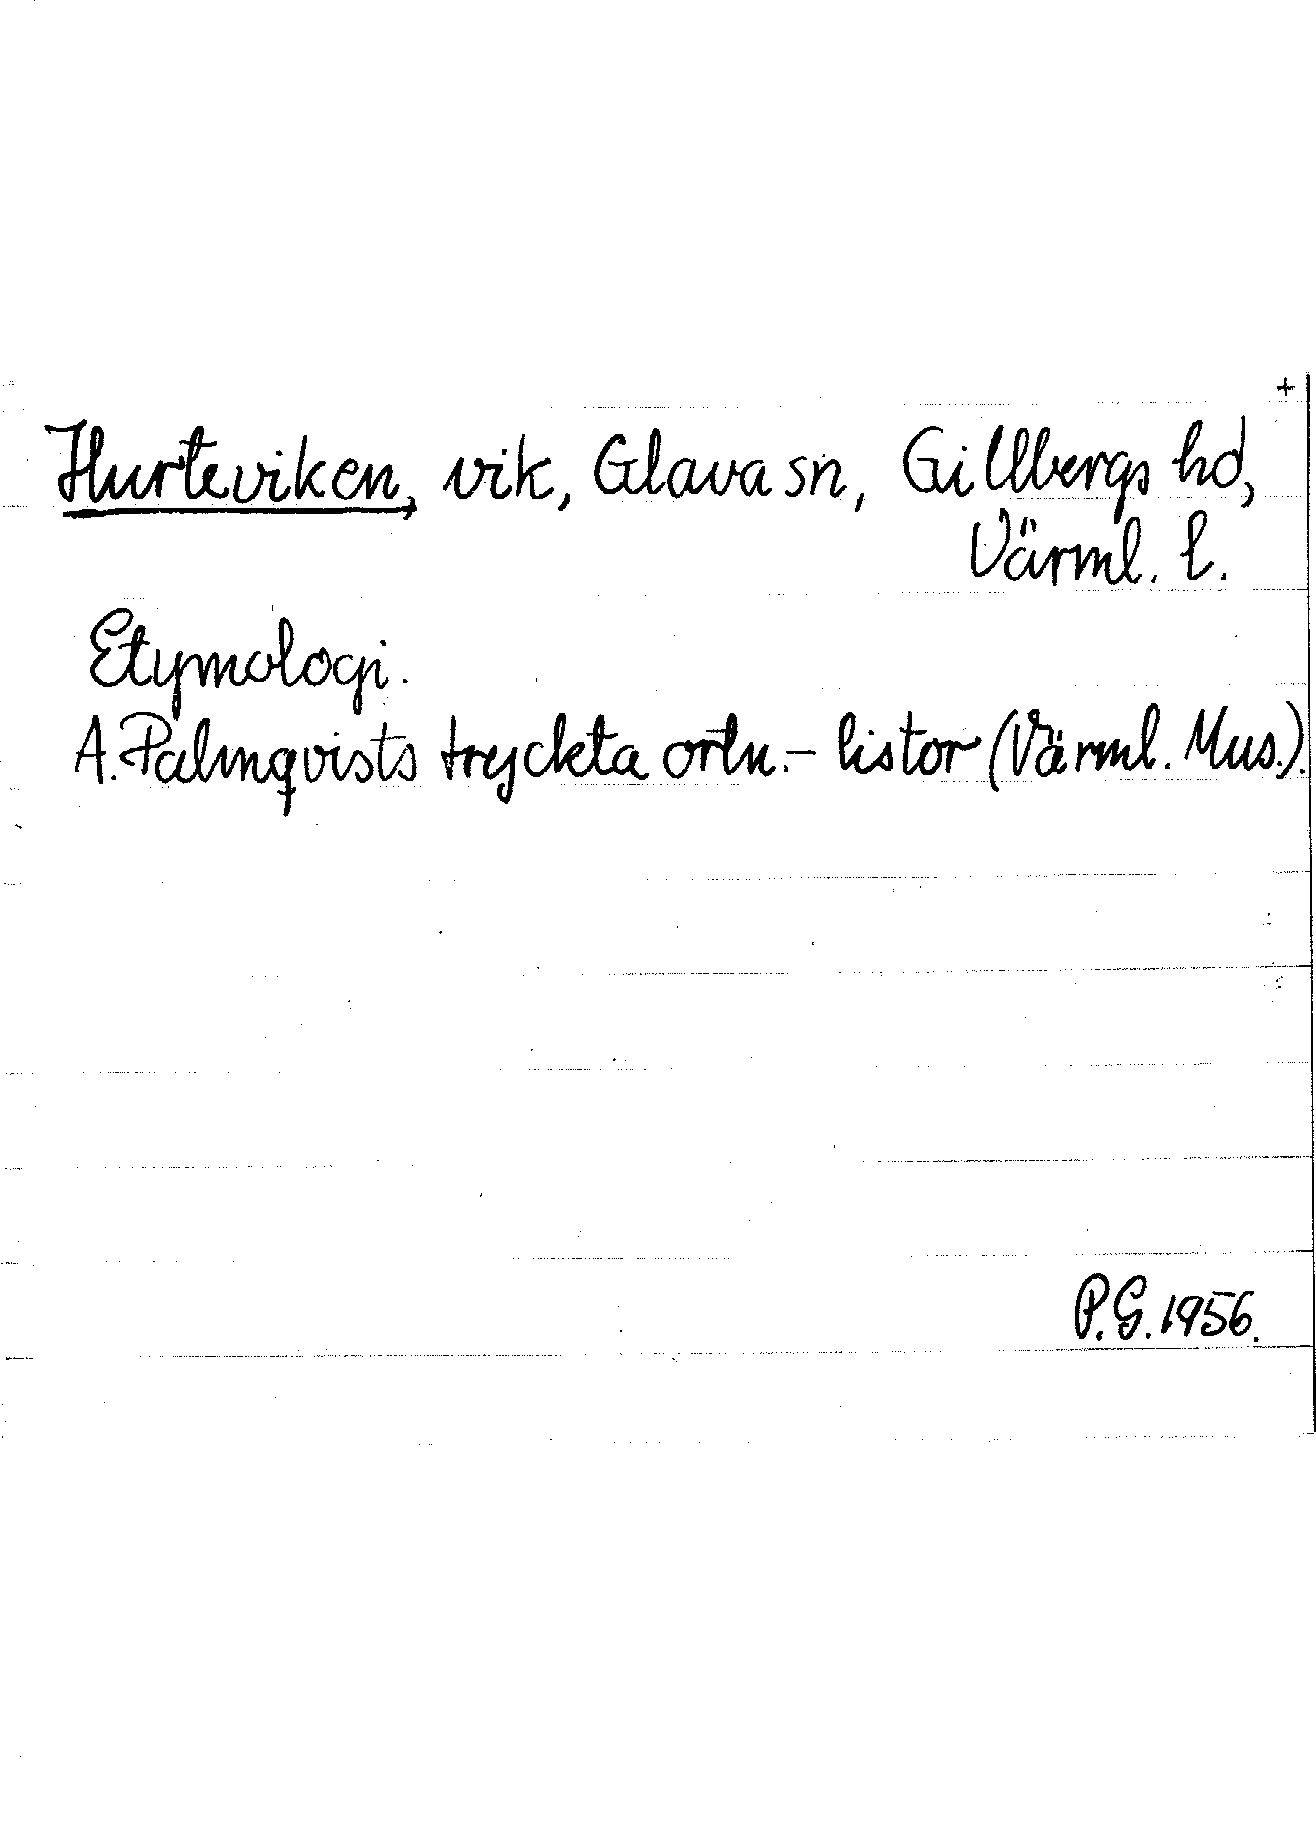 +
Hurteviken, vik, Glava sn, Gillbergs hd,
Värml. l.
Etymologi.
A. Palmqvists tryckta ortn.- listor (Värml. Mus.).
P.G. 1956.